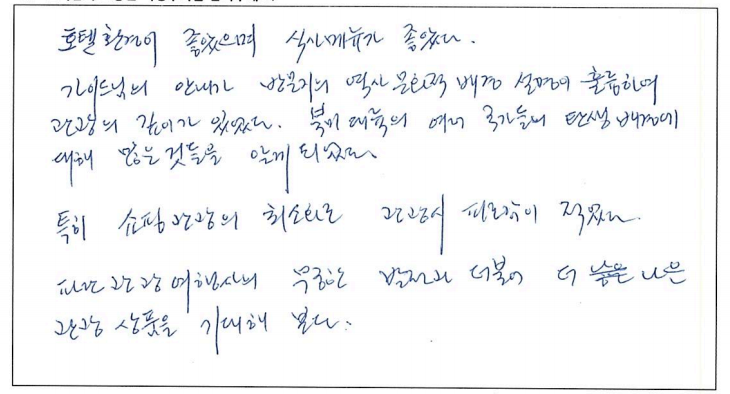 호텔환경이 좋았으며 식사메뉴가 좋았다.
가이드님의 안내가 방문지의 역사 문화적 배경 설명이 훌륭하여
관광의 깊이가 있었다. 북미 대륙의 여러 국가들의 탄생 배경에
대해 많은 것들을 알게 되었다.
특히 쇼핑관광의 최소화로 관광시 피로감이 적었다.
관광여행사의 무궁한 발전과 더불어 더 나은
관광 상품을 기대해 본다.